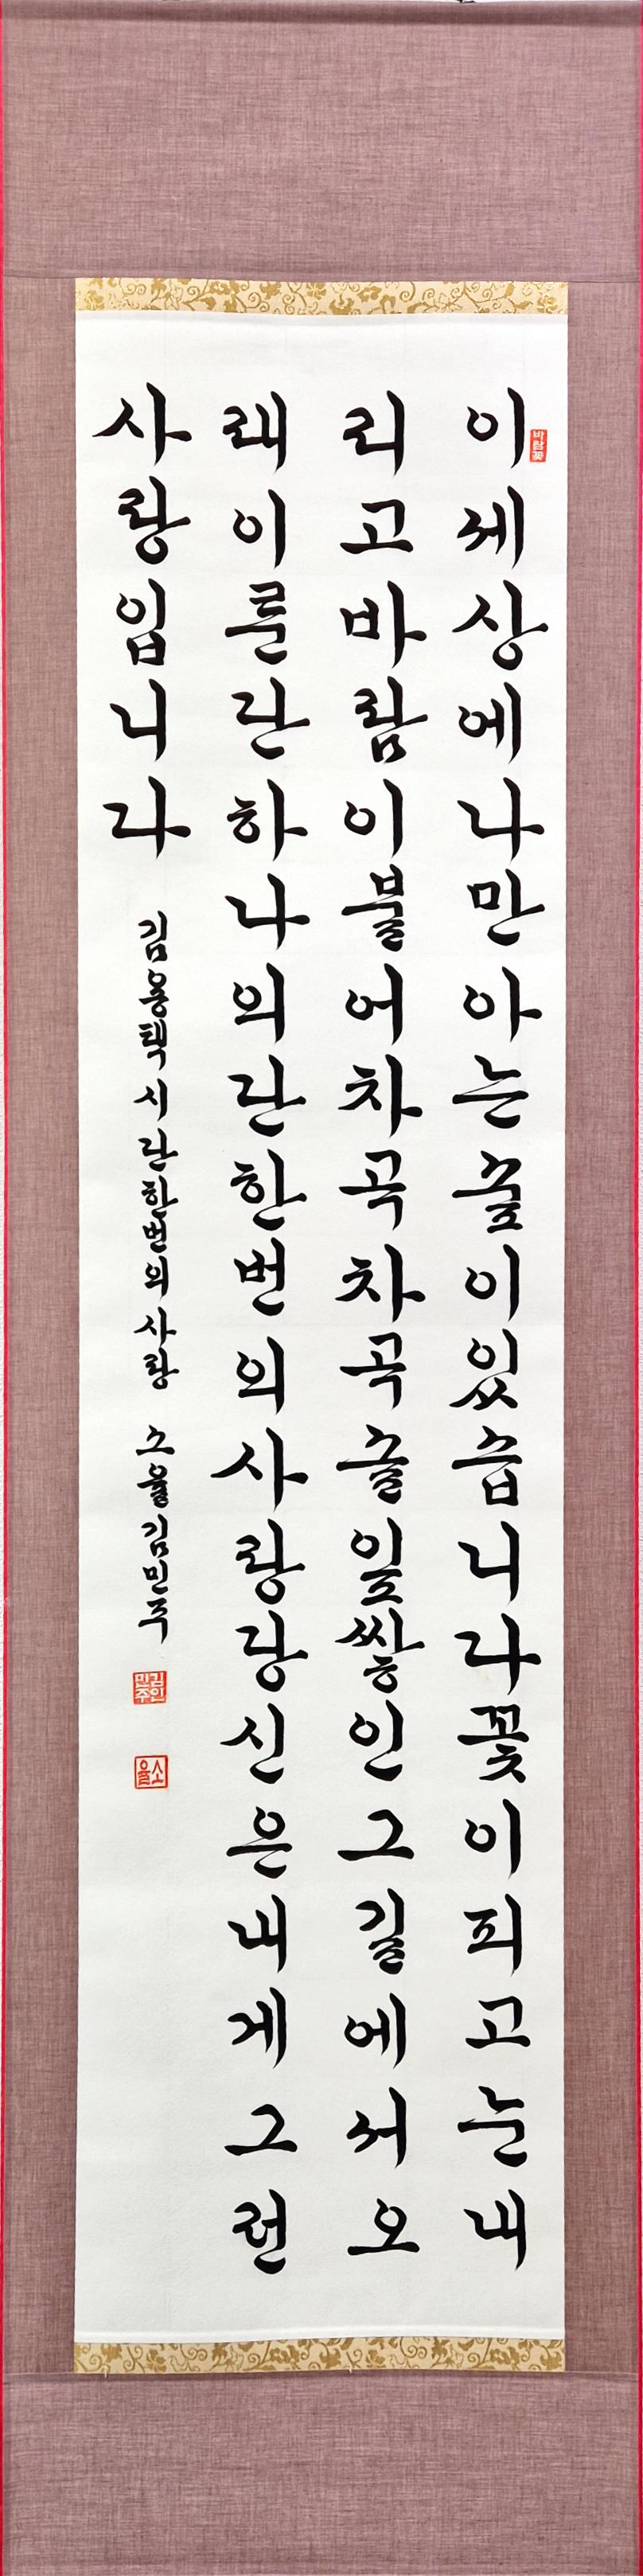 바람꽃
이세상에나만아는숲이있습니다꽃이피고눈내
리고바람이불어차곡차곡솔잎쌓인그길에서오
래이룬단하나의단한번의사랑당신은내게그런
사랑입니다
김용택시단한번의사랑 소율김민주
김인
민주
소율